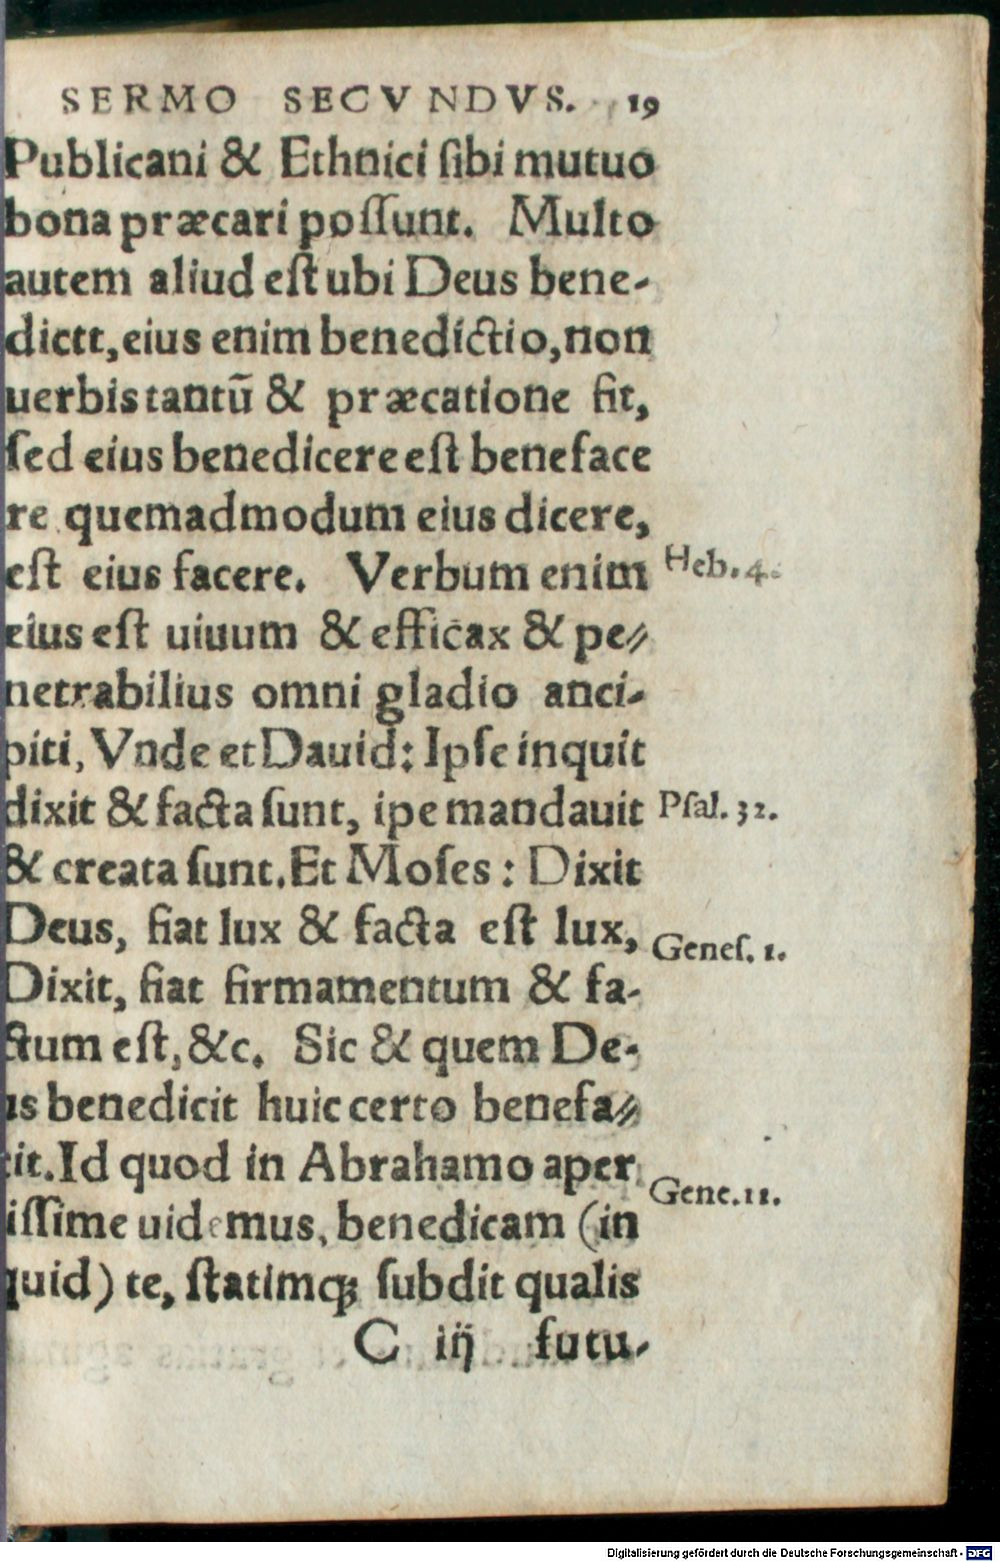 SERMO SECVNDVS. 19
Publicani & Ethnici ſibi mutuo
bona præcari poſſunt. Multo
autem aliud eſt ubi Deus bene-
dictt, eius enim benedictio, non
uerbis tantū & præcatione fit,
ſed eius benedicere eſt beneface
re quemadmodum eius dicere,
eſt eius facere. Verbum enim
Heb. 4.
eius eſt uiuum & efficax & pe-
netrabilius omni gladio anci-
piti, Vnde et Dauid: Ipſe inquit
dixit & facta ſunt, ipe mandauit
Pſal. 32.
& creata ſunt. Et Moſes: Dixit
Deus, fiat lux & facta eſt lux,
Geneſ. 1.
Dixit, fiat firmamentum & fa-
ctum eſt, &c. Sic & quem De-
us benedicit huic certo benefa-
cit. Id quod in Abrahamo aper
Gene. 11.
iſſime uidemus, benedicam (in
quid) te, ſtatimq; ſubdit qualis
C iij futu-
Digitalisierung gefördert durch die Deutsche Forschungsgemeinschaft - DFG